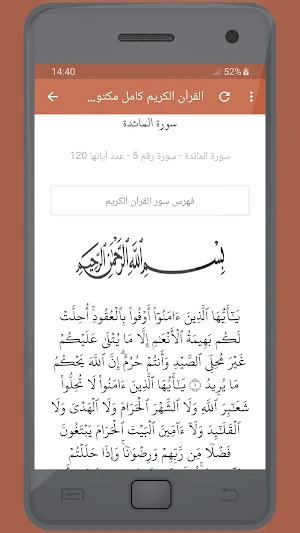 14:40 52%
القرآن الكريم كامل مكتو...
سورة المائدة
سورة المائدة - سورة رقم 5 - عدد آياتها 120
فهرس سور القرآن الكريم
بِسْمِ اللَّهِ الرَّحْمَٰنِ الرَّحِيمِ
يَـٰٓأَيُّهَا ٱلَّذِينَ ءَامَنُوٓا۟ أَوْفُوا۟ بِٱلْعُقُودِ ۚ أُحِلَّتْ
لَكُم بَهِيمَةُ ٱلْأَنْعَـٰمِ إِلَّا مَا يُتْلَىٰ عَلَيْكُمْ
غَيْرَ مُحِلِّى ٱلصَّيْدِ وَأَنتُمْ حُرُمٌ ۗ إِنَّ ٱللَّهَ يَحْكُمُ
مَا يُرِيدُ ۝١ يَـٰٓأَيُّهَا ٱلَّذِينَ ءَامَنُوا۟ لَا تُحِلُّوا۟
شَعَـٰٓئِرَ ٱللَّهِ وَلَا ٱلشَّهْرَ ٱلْحَرَامَ وَلَا ٱلْهَدْىَ وَلَا
ٱلْقَلَـٰٓئِدَ وَلَآ ءَآمِّينَ ٱلْبَيْتَ ٱلْحَرَامَ يَبْتَغُونَ
فَضْلًا مِّن رَّبِّهِمْ وَرِضْوَٰنًا ۚ وَإِذَا حَلَلْتُمْ